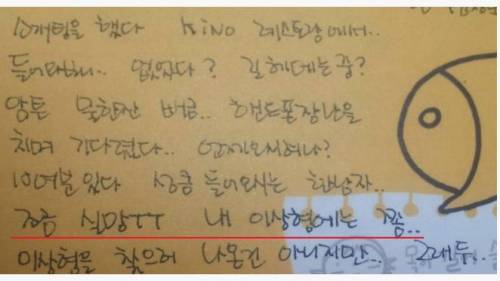 소개팅을 했다 KINO 레스토랑에서..
들어와보니.. 없었다? 길헤메는중?
암튼 물한잔 .. 핸드폰장난을
치며 기다렸다.. 언제오시려나?
10여분있다 성큼 들어오시는 한남자..
조금 실망TT 내 이상형에는 쫌..
이상형을 찾으러 나온건 아니지만.. 그래두..